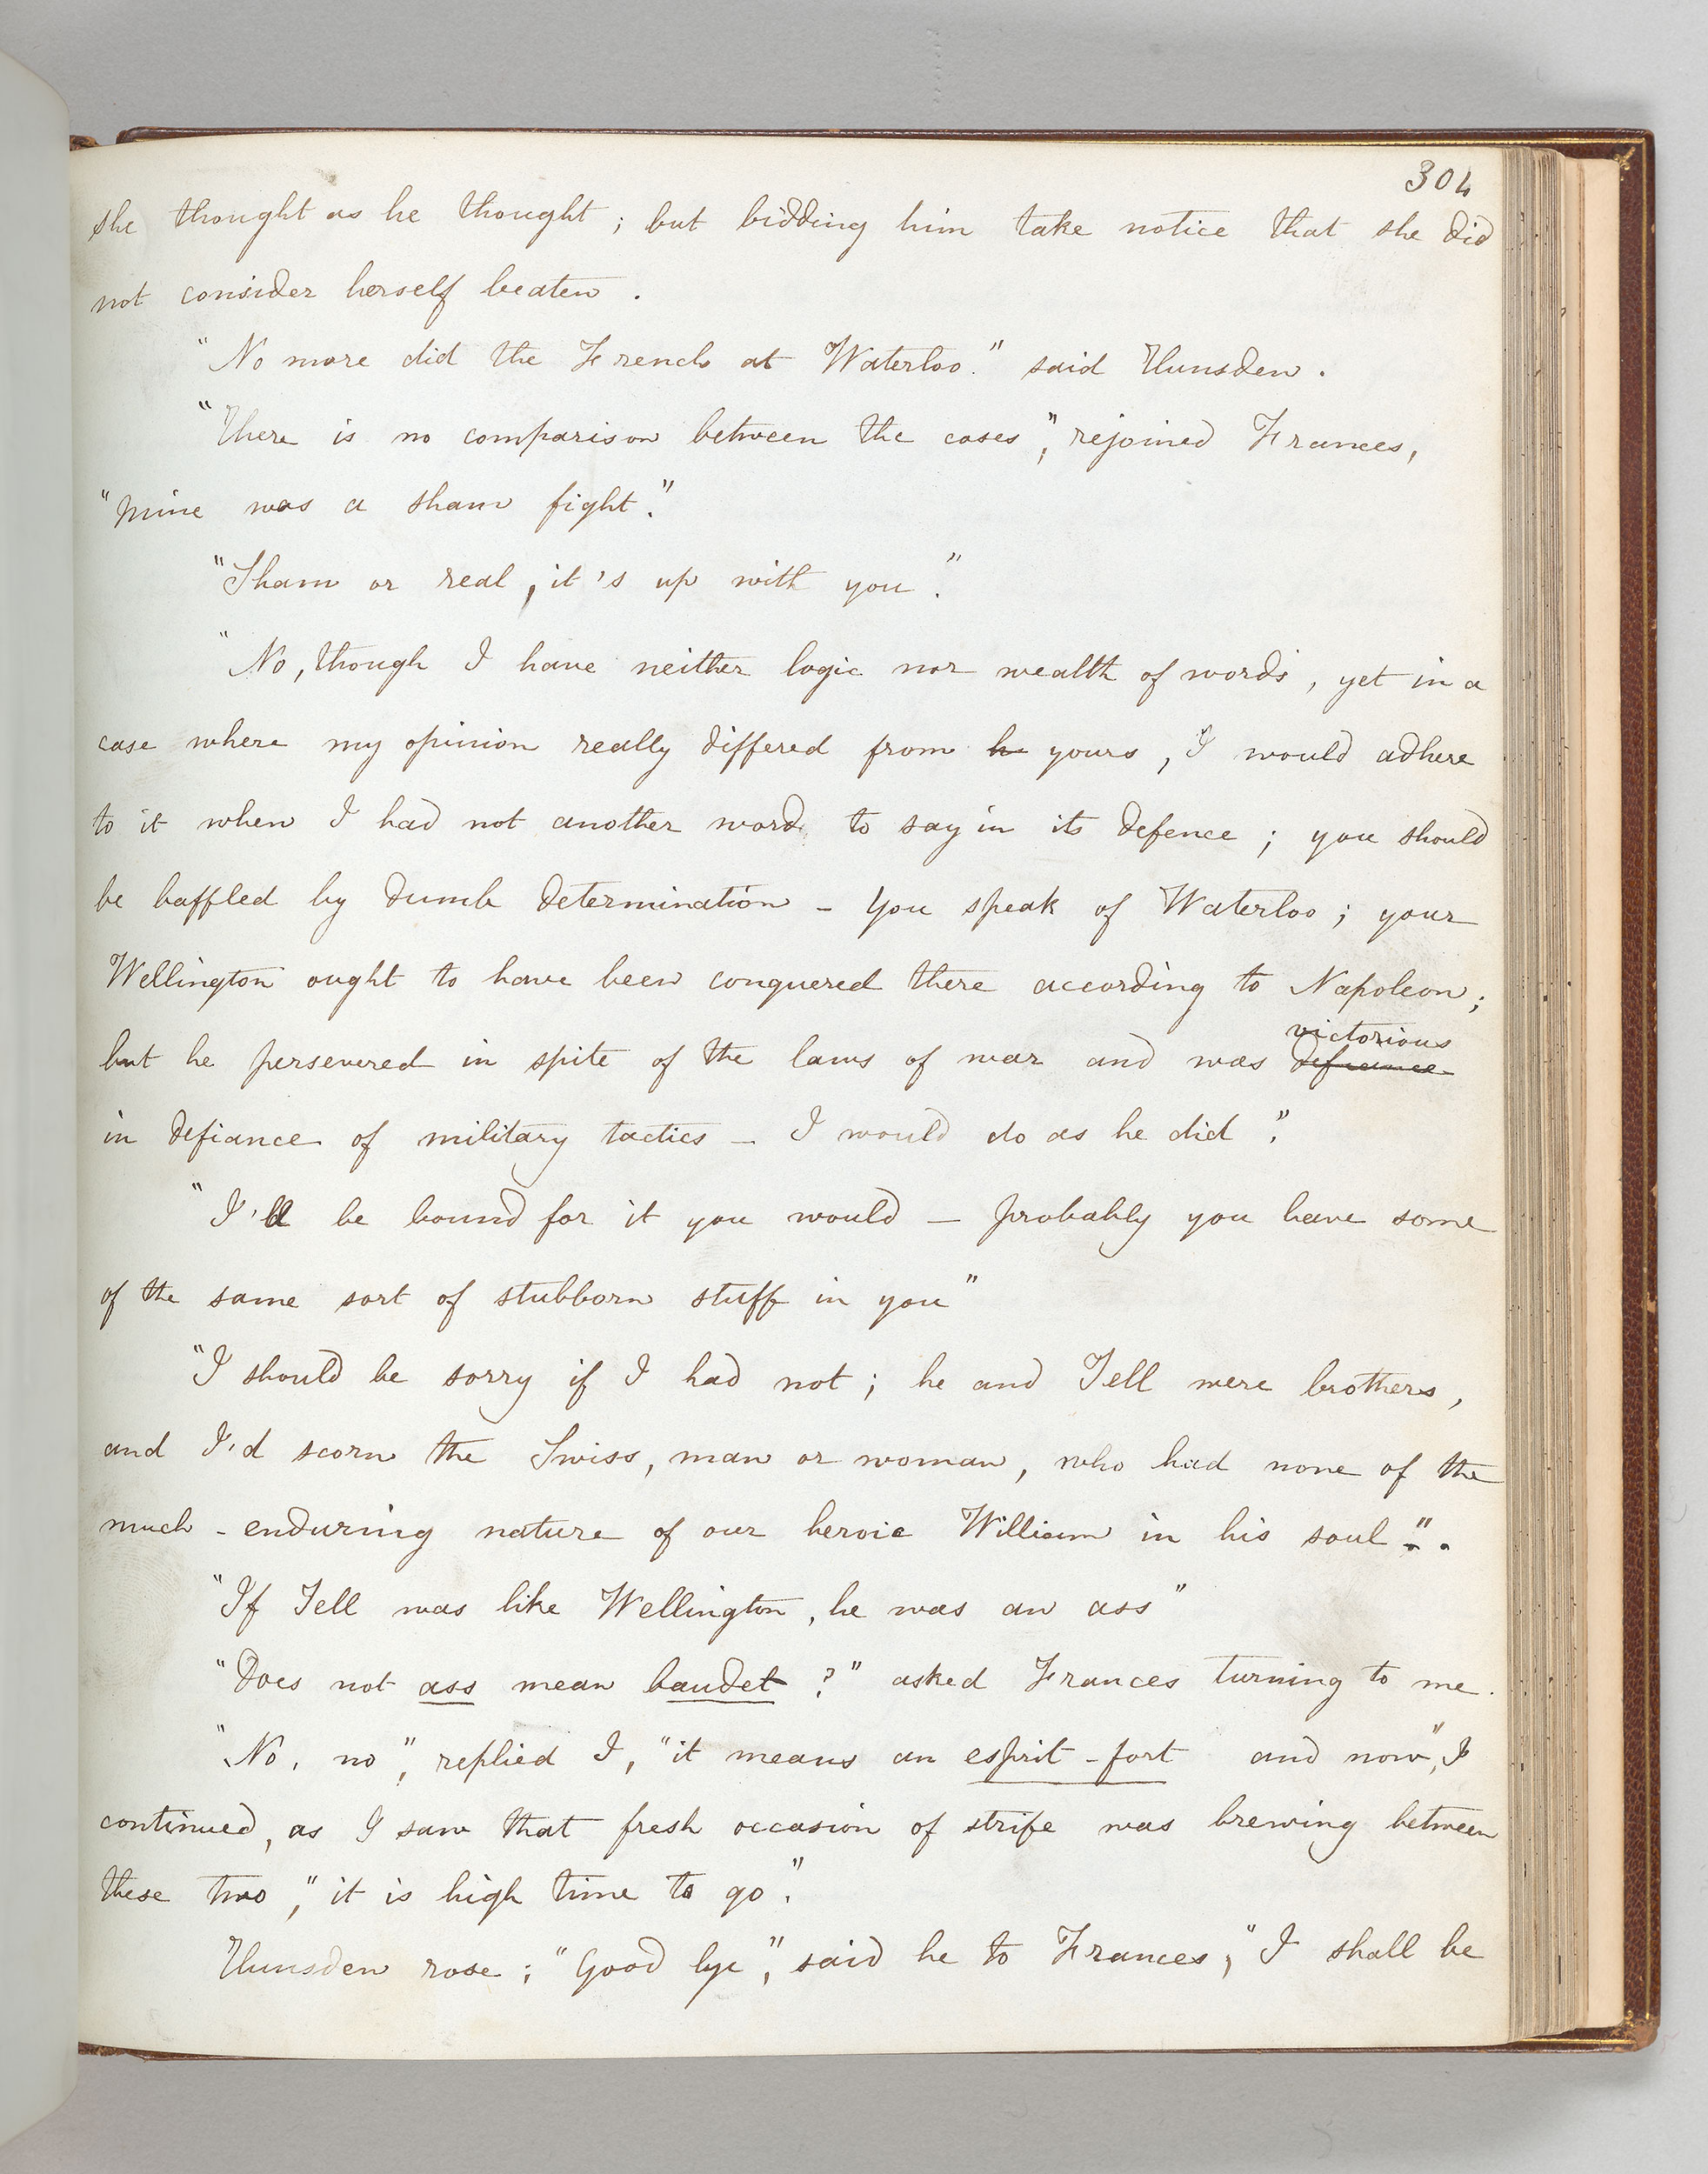 304
she thought as he thought ; but bidding him take notice that she did
not consider herself beaten .
"No more did the French at Waterloo." said Hunsden .
"There is no comparison between the cases", rejoined Frances,
"mine was a sham fight."
"Sham or real, it's up with you."
"No, though I have neither logic nor wealth of words, yet in a
case where my opinion really differed from h yours, I would adhere
to it when I had not another word to say in its defence ; you should
be baffled by dumb determination - You speak of Waterloo ; your
Wellington ought to have been conquered there according to Napoleon ;
victorious
but he persevered in spite of the laws of war and was defiance
in defiance of military tactics - I would do as he did ."
"I'll be bound for it you would - probably you have some
of the same sort of stubborn stuff in you"
"I should be sorry if I had not ; he and Tell were brothers,
and I'd scorn the Swiss, man or woman, who had none of the
much-enduring nature of our heroic William in his soul." .
"If Tell was like Wellington, he was an ass"
"Does not ass mean baudet ?" asked Frances turning to me.
"No, no", replied I, "it means an esprit-fort and now", I
continued, as I saw that fresh occasion of strife was brewing between
these two, "it is high time to go."
Hunsden rose ; "Good bye", said he to Frances, "I shall be